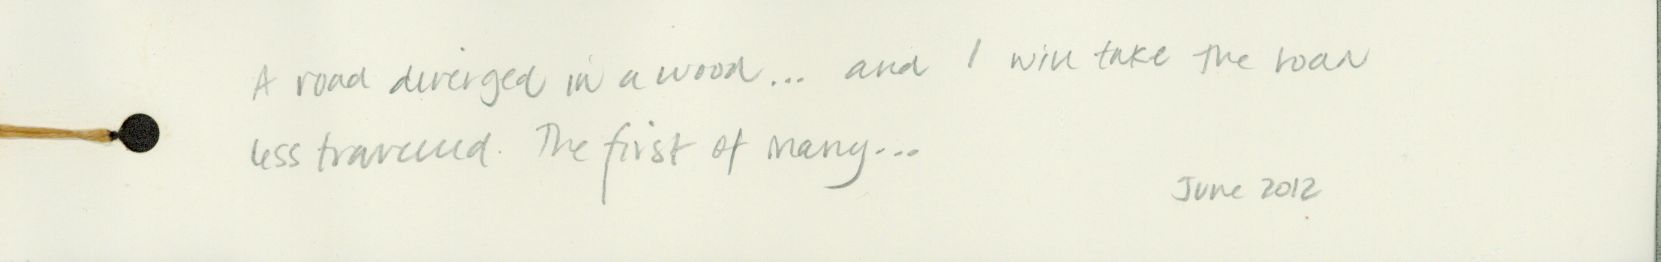 A road diverged in a wood... and I will take the road
less travelled. The first of many...
June 2012